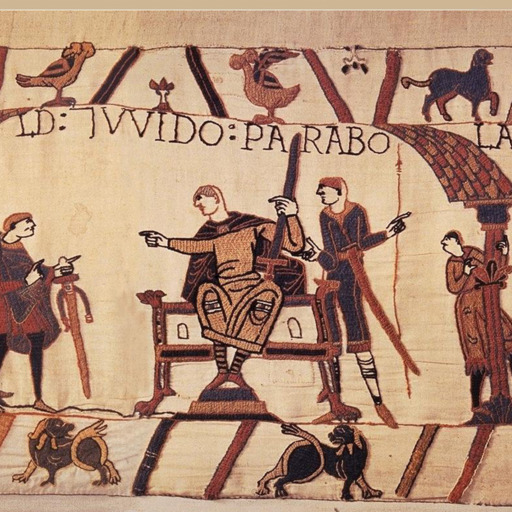 LD: ⁊ VVIDO: PARABO LA